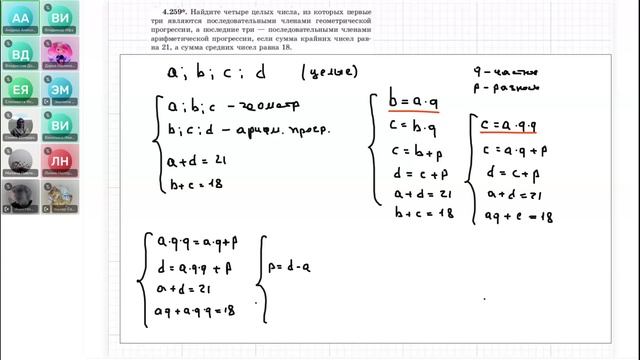 4.259*. Найдите четыре целых числа, из которых первые
три являются последовательными членами геометрической
прогрессии, а последние три — последовательными членами
арифметической прогрессии, если сумма крайних чисел рав-
на 21, а сумма средних чисел равна 18.
АА
ВИ
ВД
ЕЯ
ЭМ
ВИ
ЛН
a ; b ; c ; d (целые)
q - частное
p - разность
a ; b ; c - геометр
b ; c ; d - арифм. прогр.
a + d = 21
b + c = 18
b = a · q
c = b · q
c = b + p
d = c + p
a + d = 21
b + c = 18
c = a · q · q
c = a · q + p
d = c + p
a + d = 21
aq + c = 18
a · q · q = a · q + p
d = a · q · q + p
a + d = 21
aq + a · q · q = 18
p = d - a